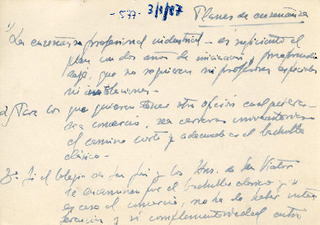 -577- 3/8/87
Planes de enseñanza
1) La enseñanza profesional industrial - es suficiente el
plan con dos años de iniciación y profundi
, que no requieren ni profesores especiales
ni instalaciones.
2) Para los que quieran tener otro oficio cualquiera -
sea comercio, sea carreras universitarias
el camino corto y adecuado es el bachiller
clásico -
3º Si el colegio de San José y los Hnos. de San Victor
se examinan por el bachiller clásico y
es caso el comercio, no ha de haber inter
ferencia y si complementariedad entre